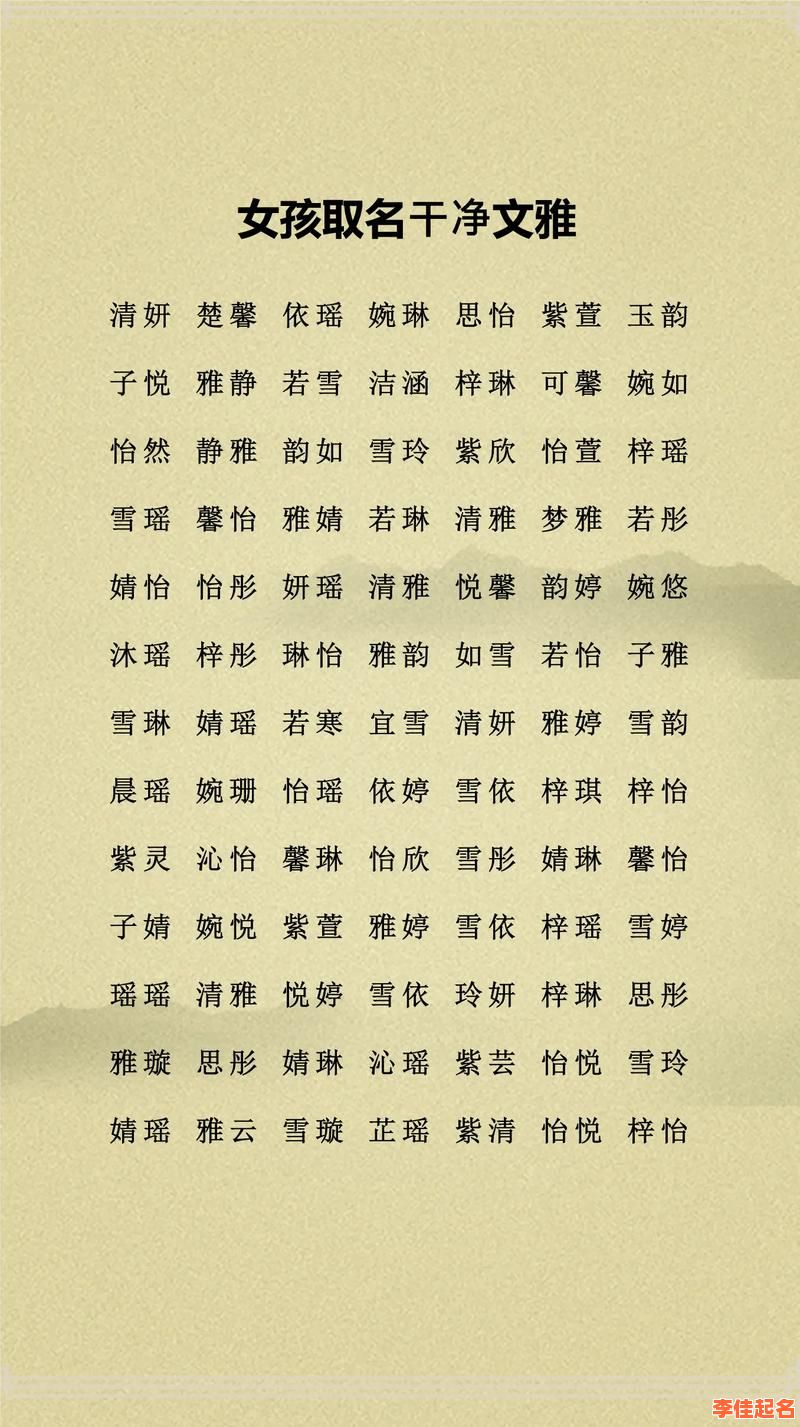 女孩取名干净文雅
清妍 楚馨 依瑶 婉琳 思怡 紫萱 玉韵
子悦 雅静 若雪 洁涵 梓琳 可馨 婉如
怡然 静雅 韵如 雪玲 紫欣 怡萱 梓瑶
雪瑶 馨怡 雅婧 若琳 清雅 梦雅 若彤
婧怡 怡彤 妍瑶 清雅 悦馨 韵婷 婉悠
沐瑶 梓彤 琳怡 雅韵 如雪 若怡 子雅
雪琳 婧瑶 若寒 宜雪 清妍 雅婷 雪韵
晨瑶 婉珊 怡瑶 依婷 雪依 梓琪 梓怡
紫灵 沁怡 馨琳 怡欣 雪彤 婧琳 馨怡
子婧 婉悦 紫萱 雅婷 雪依 梓瑶 雪婷
瑶瑶 清雅 悦婷 雪依 玲妍 梓琳 思彤
雅璇 思彤 婧琳 沁瑶 紫芸 怡悦 雪玲
婧瑶 雅云 雪璇 芷瑶 紫清 怡悦 梓怡
李佳起名